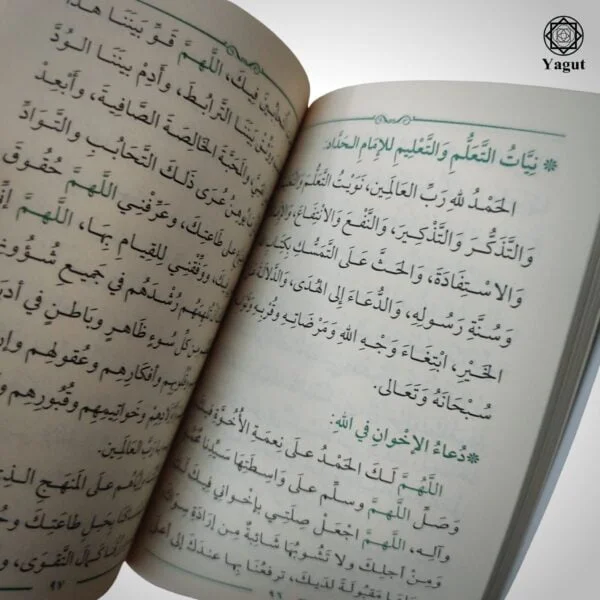 Yagut
* نِيَّاتُ التَّعَلُّمِ وَالتَّعْلِيمِ لِلإِمَامِ الحَدَّاد:
الحَمْدُ للهِ رَبِّ العَالَمِين، نَوَيْتُ التَّعَلُّمَ
وَالتَّذَكُّرَ وَالتَّذْكِيرَ، وَالنَّفْعَ وَالانْتِفَاعَ،
وَالاسْتِفَادَةَ، وَالحَثَّ عَلَى التَّمَسُّكِ
وَسُنَّةِ رَسُولِهِ، وَالدُّعَاءَ إِلَى الهُدَى، وَالدَّلَالَةَ
الخَيْرِ، ابْتِغَاءَ وَجْهِ اللهِ وَمَرْضَاتِهِ وَقُرْبِهِ
سُبْحَانَهُ وَتَعَالَى.
* دُعَاءُ الإِخْوَانِ فِي اللهِ:
اللَّهُمَّ لَكَ الحَمْدُ عَلَى نِعْمَةِ الأُخُوَّةِ
وَصَلِّ اللَّهُمَّ وَسلِّم عَلَى وَاسِطَتِهَا سَيِّدِنَا
وَآلِهِ، اللَّهُمَّ اجْعَلْ صِلَتِي بِإِخْوَانِي فِيكَ
وَمِنْ أَجْلِكَ وَلَا تَشُوبُهَا شَائِبَةٌ مِنْ إِرَادَةِ
مَقْبُولَةً لَدَيكَ، تَرفَعُنَا بِهَا عِنْدَكَ إِلَى أَعْلَى
٩٦
فِيكَ، اللَّهُمَّ قَوِّ بَيْنَنَا هَذَا
التَّرَابُطَ، وَأَدِمْ بَيْنَنَا الوُدَّ
وَالمَحَبَّةَ الخَالِصَةَ الصَّافِيَةَ، وَأَبْعِدْ
مِنْ عُرَى ذَلِكَ التَّحَابُبِ وَالتَّوَادِّ
عَلَى طَاعَتِكَ، وَعَرِّفْنِي اللَّهُمَّ حُقُوقَ
وَوَفِّقْنِي لِلقِيَامِ بِهَا، اللَّهُمَّ
رُشْدَهُم فِي جَمِيعِ
مِنْ كُلِّ سُوءٍ ظَاهِرٍ وَبَاطِنٍ فِي
وَأَفْكَارِهِم وَعُقُولِهِم
وَخَوَاتِيمِهِم وَقُبُورِهِم
العَالَمِين.
عَلَى المَنْهَجِ
بِحَبْلِ طَاعَتِكَ
كَمَالَ التَّقْوَى،
٩٧